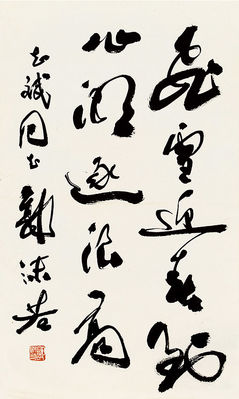 飛雪迎春到
心潮逐浪高
志斌同志 郭沫若